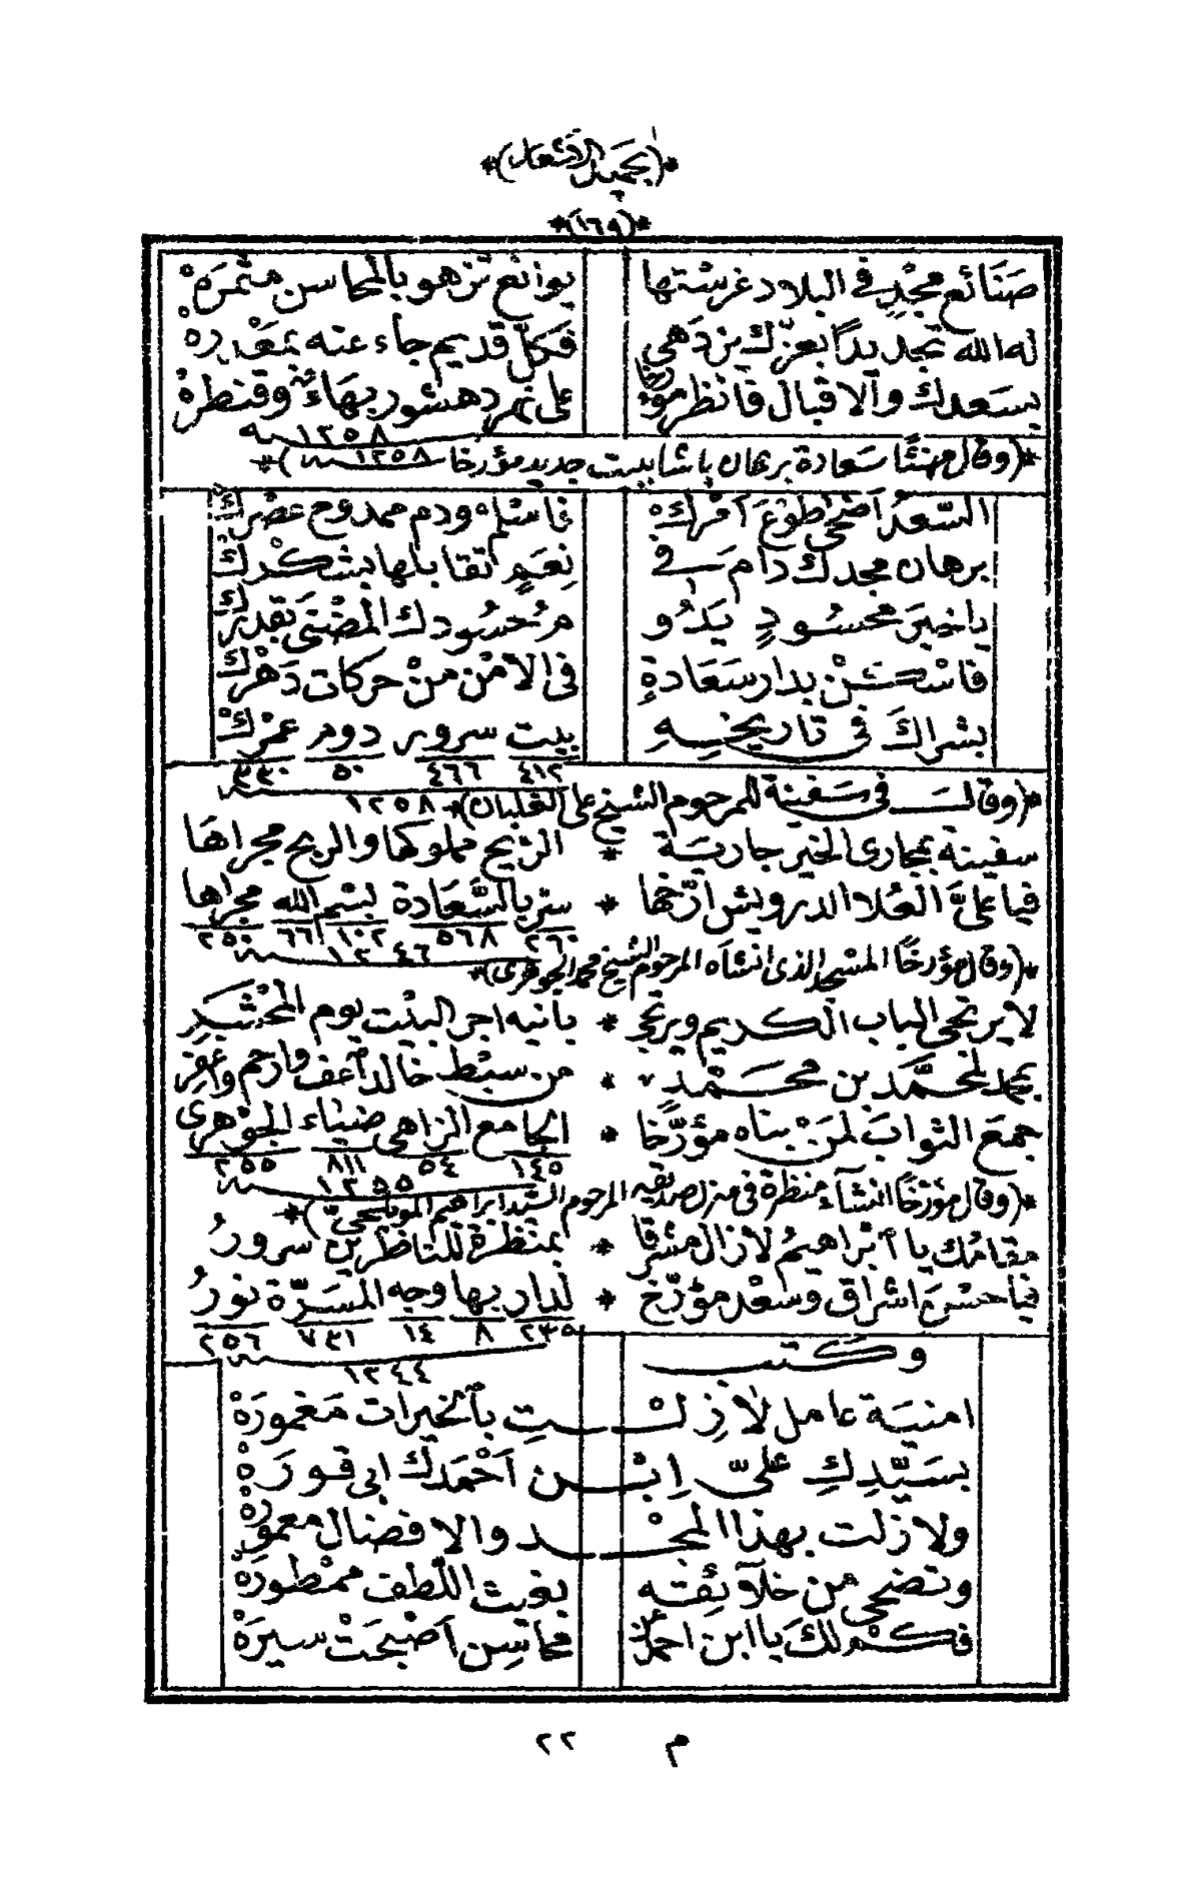 *(بجميل الاشعار)*
*(١٦٩)*
صَنَائع مجْدٍ في البلاد غرستها يوانع تزهو بالمحاسن مثمرَهْ
له الله تجديداً بعزّك تزدهي فكلّ قديم جاء عنه بمعْذرهْ
بسعدك والاقبال فانظر مؤرخا على نهر دهشور بهاء وقنطرهْ
١٢٥٨ سنة
*(وقال مهنئًا سَعادة برهان باشا ببيت جديد مؤرخا سنة ١٢٥٨)*
السّعدُ اَضحى طوْعَ اَمْرِكْ فاسْلم ودم ممدوح عصْركْ
برهان مجدك دامَ في نِعَمٍ اتقابلها بشكْركْ
ياخيرَ محسُودٍ يَدُو مُ حُسُودك المضْنَى بقدركْ
فاسْكُنْ بدار سَعَادةٍ في الامْن منْ حركات دَهْركْ
بشراكَ في تاريخِهِ بيت سرور دوم عمْركْ
٤١٢ ٤٦٦ ٥٠ ٣٣٠
سنة ١٢٥٨
*(وقال في سَفينة للمرحوم الشيخ على الغلبان)*
سفينة بمجارى الخير جاريَة * الرّيح مملوكها والريح مجراهَا
فيا علىَّ العُلا الدرويش ارّخها * سرْ بالسَّعَادة بسْم الله مجراها
٢٦٠ ٥٦٨ ١٠٢ ٦٦ ٢٥٠
سنة ١٢٤٦
*(وقال مؤرخًا المسْجد الذى انشأه المرحوم الشيخ محمد الجوهرى)*
لا يرتجى الباب الكريم ويرتجى * بانيه اجر البيْت يوم المحْشَرِ
بمحمد لمحمَّد بن محَمْد * من سبْط خالد اَعف وارحم واغفر
جمعَ الثوابَ لمَنْ بناه مؤرّخًا * الجامع الزاهى ضياء الجوْهرى
١٤٥ ٥٤ ٨١١ ٢٥٥
سنة ١٢٥٥
*(وقال مؤرّخًا انشآء منظرة في منزل صديقه المرحوم السّيد ابراهيم المويلحىّ)*
مقامُك يا اَبْراهيمُ لازال مشرقا * بمنْظرة للناظرين سرورُ
فيا حسْنَ اشراق وسَعْد مؤرّخ * لدار بها وجه المسَرّة نورُ
٢٣٥ ٨ ١٤ ٧٣١ ٢٥٦
سنة ١٢٤٤
وكتب
امنيَة عامل لازِ لْتِ باَلخيرات مَغمورَهْ
بسَيّدِكِ علىّ اِبْن اَحْمَدك ابى قورَهْ
ولا زلت بهذا المجْد والافضال معمورهْ
وتضحى من خلآئقه بغيث اللّطف ممْطورَهْ
فكمْ لكَ يا ابن احمد محاسِن اَصْبحَتْ سيرَهْ
م ٢٢